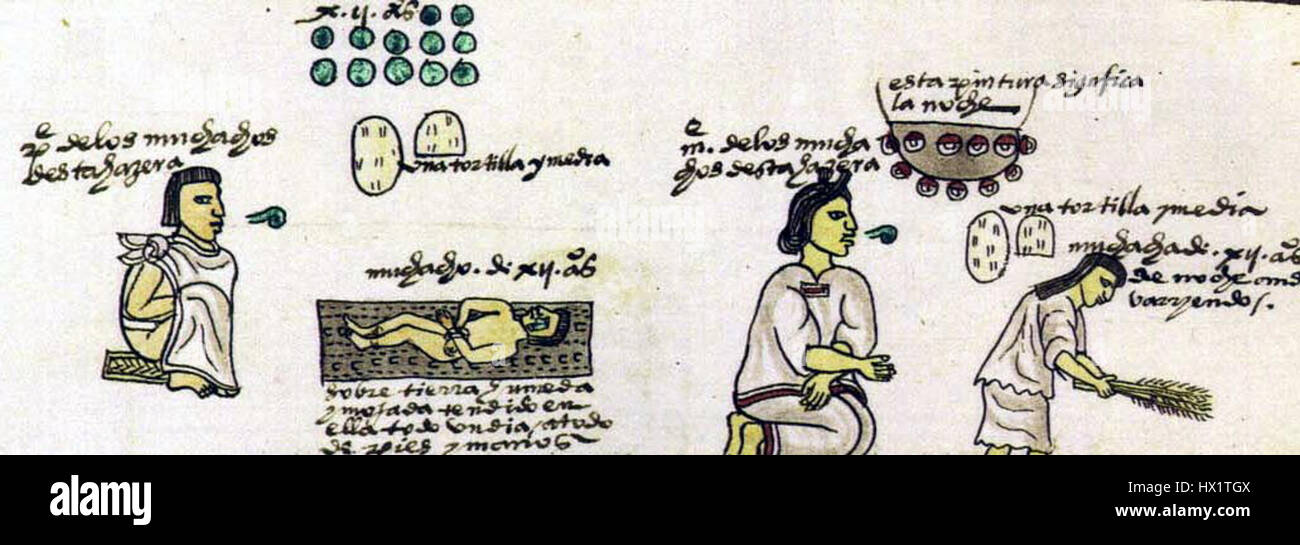 x.ij. aºs
pe de los muchachos
desta hazera
una tortilla y media
muchacho. de xij. aºs
sobre tierra umeda
y mojada tendido en
ella todo un dia / atado
de pies y manos
me de los mucha
chos desta hazera
esta pintura significa
la noche
una tortilla y media
muchacha de. xij. aºs
de noche
varriendo.
alamy stock photo
HX1TGX
www.alamy.com